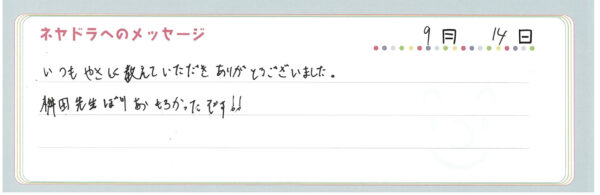 ネヤドラへのメッセージ
9月 14日
いつもやさしく教えていただきありがとうございました。
桝田先生ばりおもろかったです!!